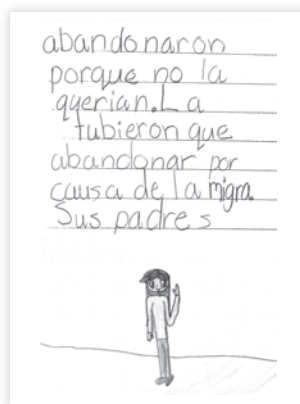 abandonaron
porque no la
querian. La
tubieron que
abandonar por
causa de la migra.
Sus padres